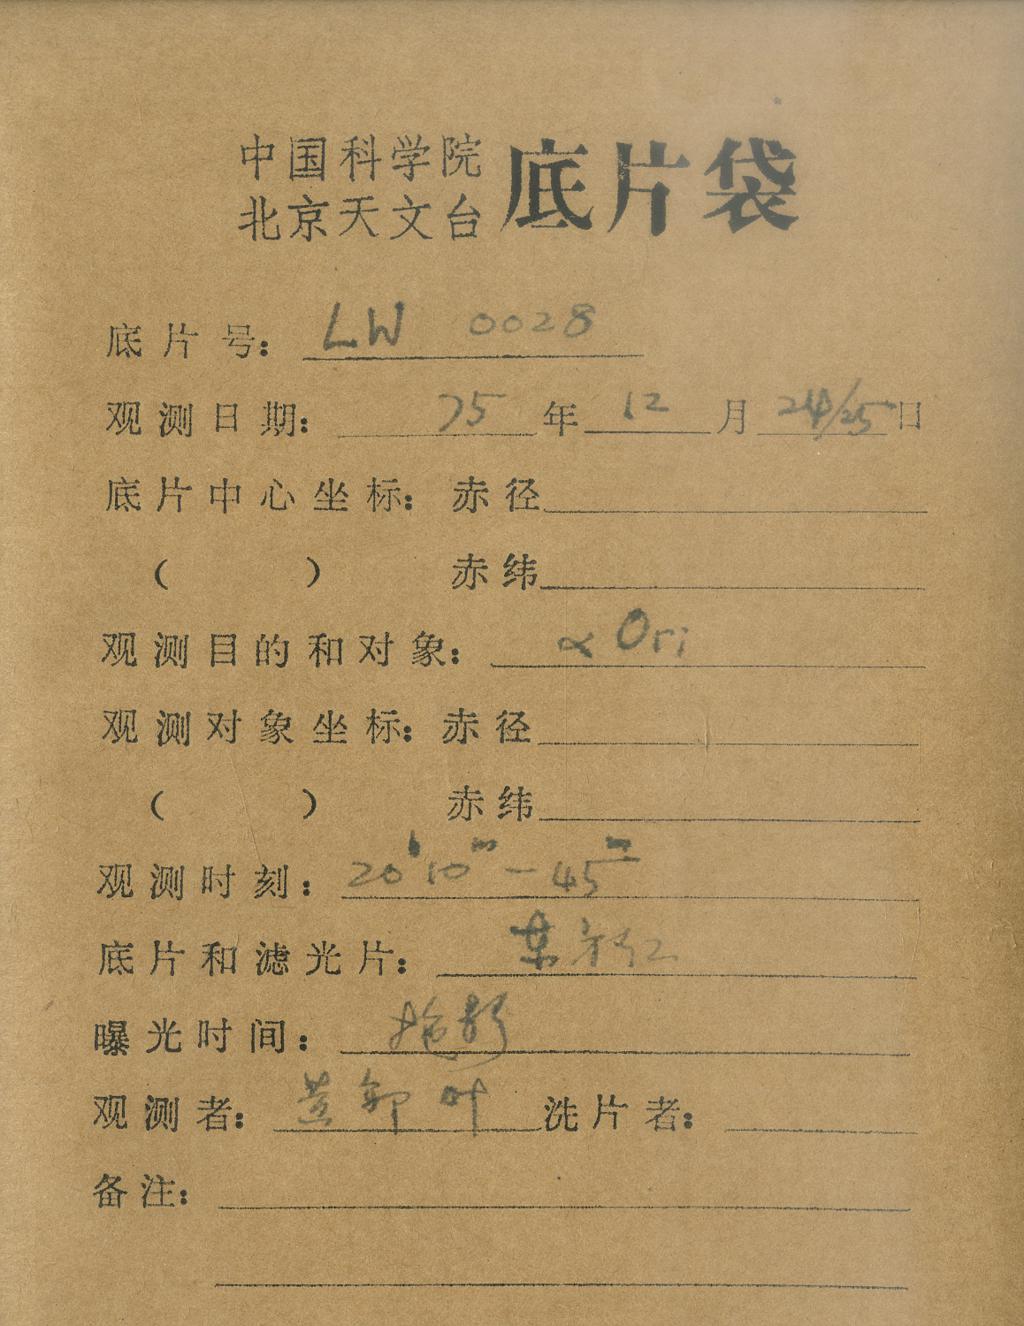 中国科学院
北京天文台 底片袋
底片号: LW 0028
观测日期: 75 年 12 月 24/25 日
底片中心坐标: 赤径
( ) 赤纬
观测目的和对象: α Ori
观测对象坐标: 赤径
( ) 赤纬
观测时刻: 20h10m — 45m
底片和滤光片:
曝光时间: 拖影
观测者: 黄 郭 叶 洗片者:
备注: